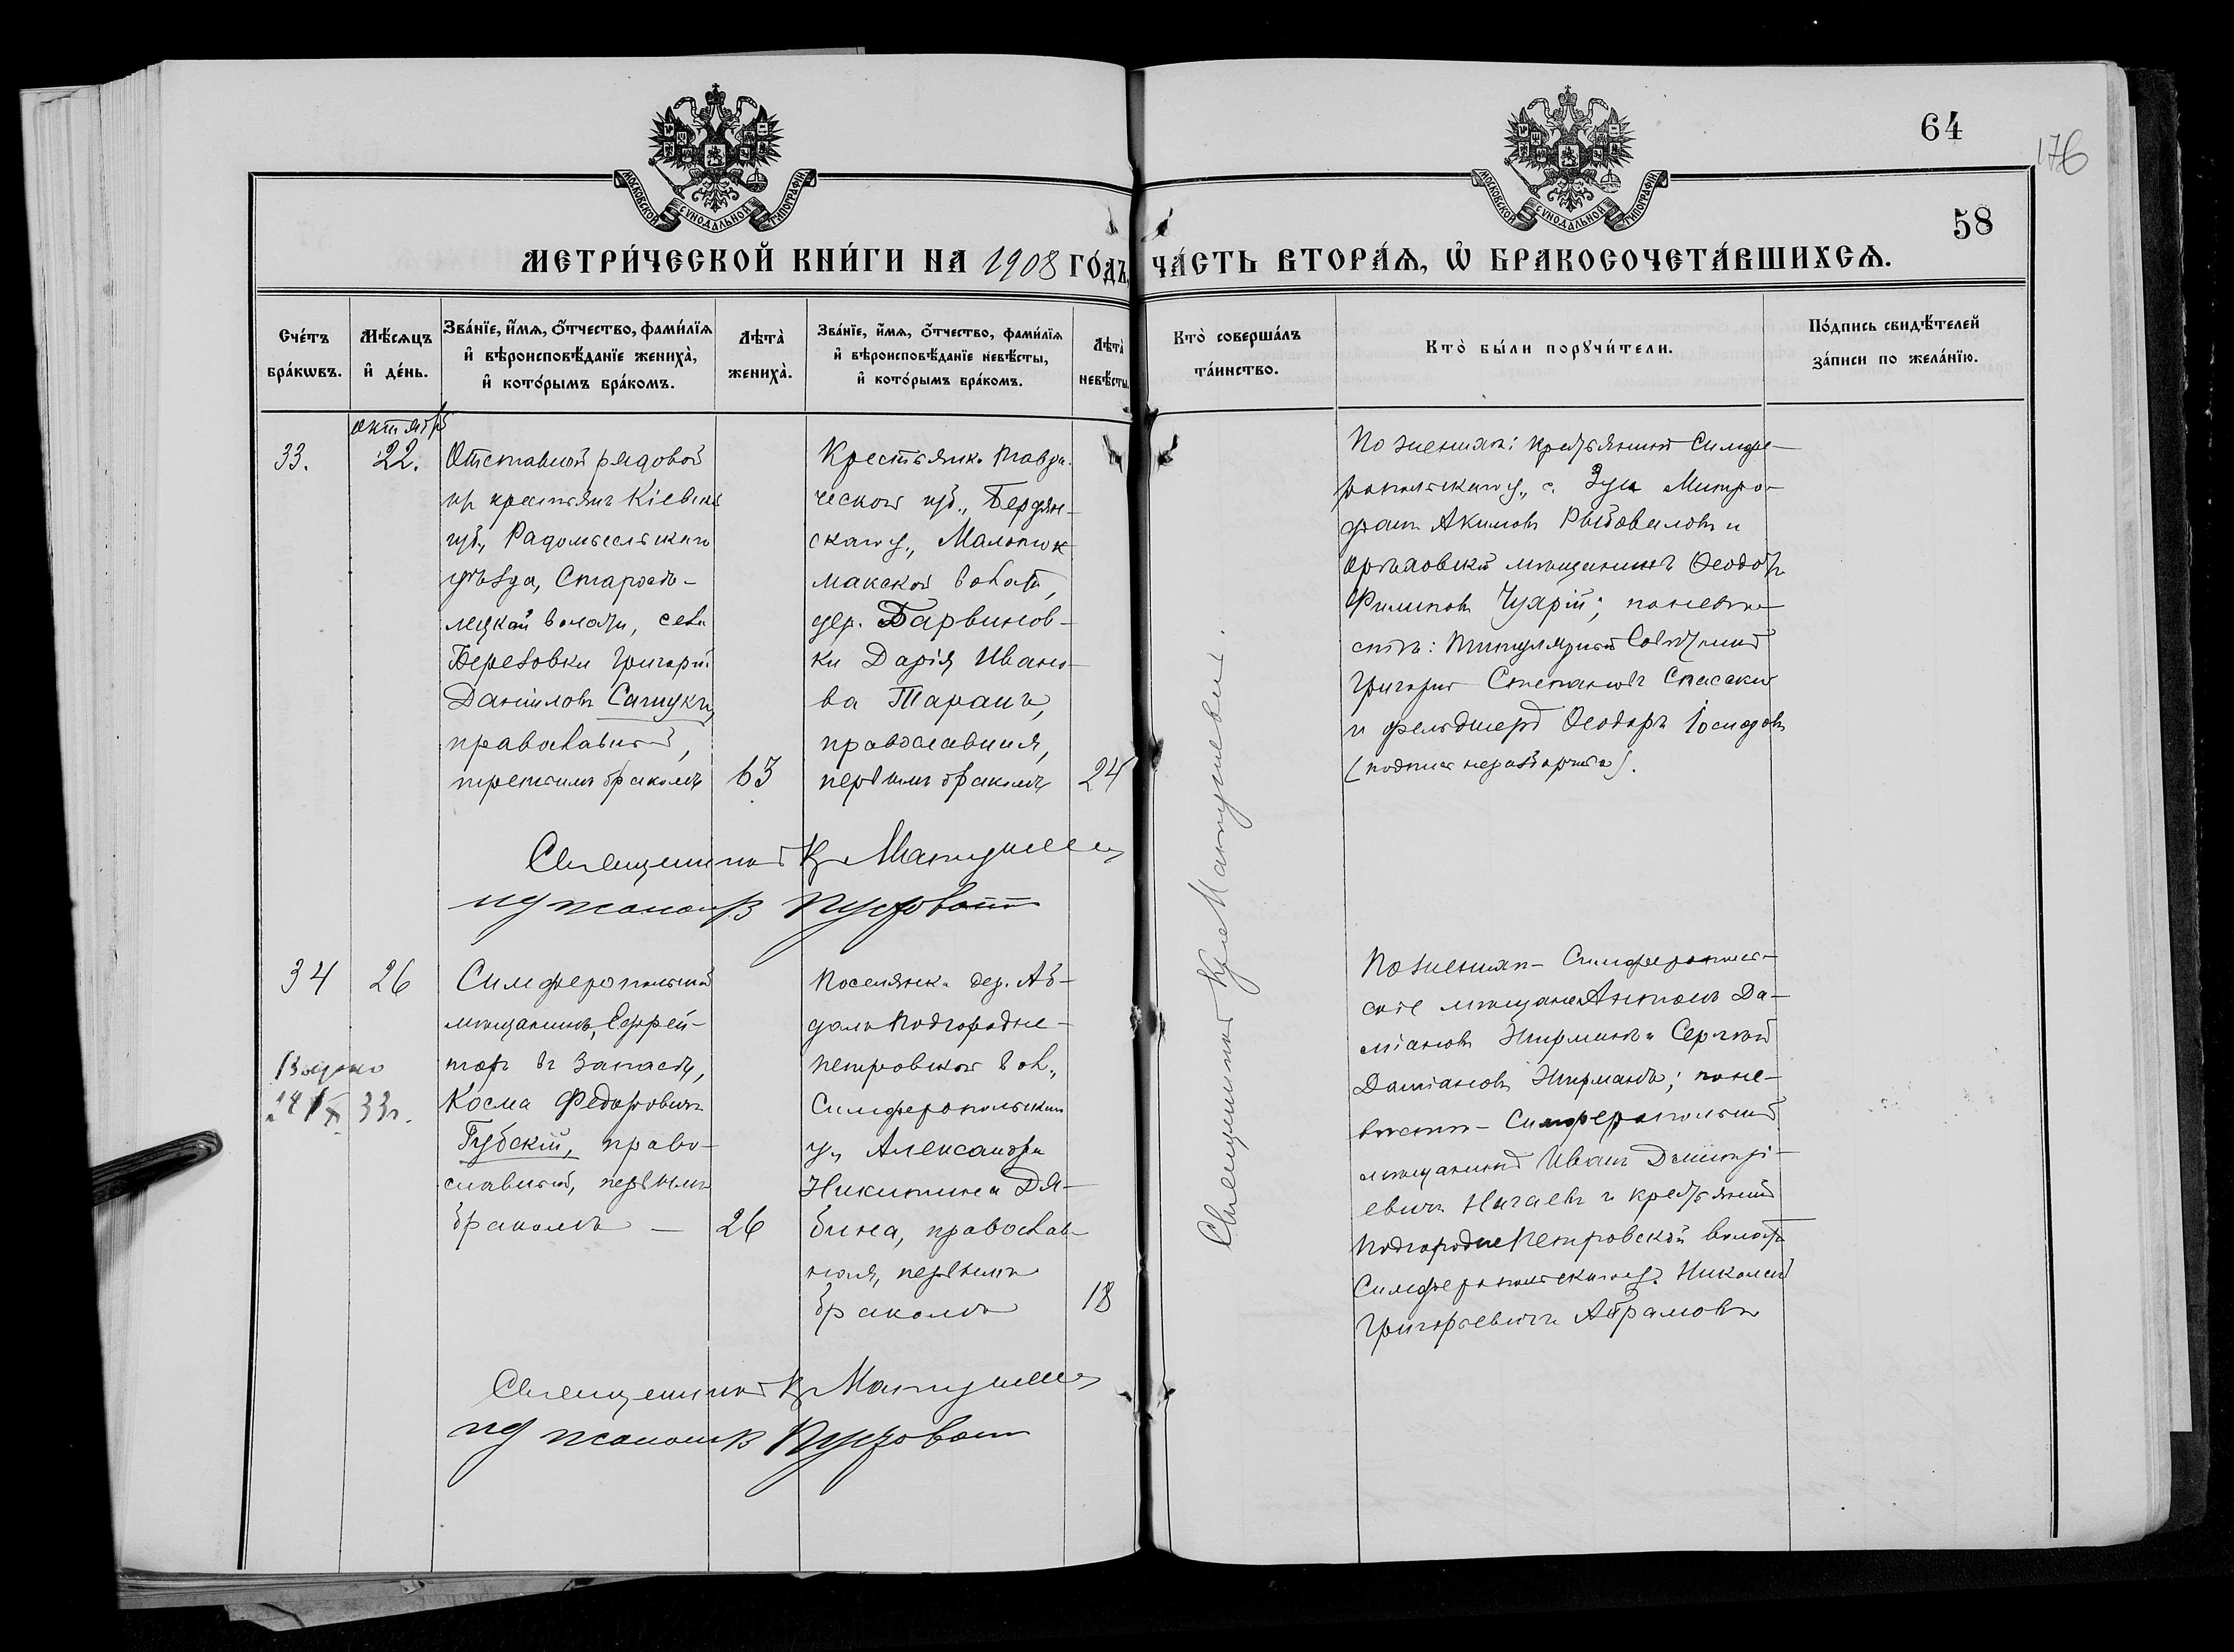 64
176
58
МОСКОВСКОЙ СѴНОДАЛЬНОЙ ТИПОГРАФІИ
МОСКОВСКОЙ СѴНОДАЛЬНОЙ ТИПОГРАФІИ
МЕТРИ́ЧЕСКОЙ КНИ́ГИ НА 1908 ГО́ДЪ, ЧА́СТЬ ВТОРА́Ѧ, Ѡ БРАКОСОЧЕТА́ВШИХСѦ.
Сче́тъ
бра́кѡвъ.
Мѣ́сѧцъ
и҆ де́нь.
Зва́нїе, и҆́мѧ, ѻ҆́тчество, фами́лїѧ
и҆ вѣроисповѣ́данїе жениха̀,
и҆ кото́рымъ бра́комъ.
Лѣ́та̀
жениха̀.
Зва́нїе, и҆́мѧ, ѻ҆́тчество, фами́лїѧ
и҆ вѣроисповѣ́данїе невѣ́сты,
и҆ кото́рымъ бра́комъ.
Лѣ́та̀
невѣ́сты.
Кто̀ соверша́лъ
та́инство.
Кто̀ бы́ли порꙋчи́тели.
По́дпись свидѣ́телей
за́писи по жела́нїю.
33.
октября
22.
Отставной рядовой
изъ крестьянъ Кіевской
губ., Радомысльскаго
уѣзда, Старосѣ-
лецкой волости, села
Березовки Григорій
Даніиловъ Сащукъ,
православный,
третьимъ бракомъ
63
Крестьянка Таври-
ческой губ., Бердян-
скаго у., Малоток-
макской волости,
дер. Барвинов-
ки Дарія Ивано-
ва Таранъ,
православная,
первымъ бракомъ
24
По женихѣ: крестьянинъ Симфе-
ропольскаго у., с. Зуи Митро-
фанъ Акимовъ Рыбоваловъ и
орѣховскій мѣщанинъ Ѳеодоръ
Филиповъ Чуярій; по невѣ-
стѣ: Титулярный Совѣтникъ
Григорій Степановъ Спасскій
и фельдшеръ Ѳеодоръ Іосифовъ
(подпись неразборчива).
Священникъ К. Матушевск
ид псаломщ Пустоваш
Священникъ Матушевскій.
34
26
Выдано
14 IX 33г.
Симферопольскій
мѣщанинъ, Ефрей-
торъ въ запасѣ,
Косма Федоровичъ
Губскій, право-
славный, первымъ
бракомъ —
26
Поселянка дер. Аб-
далъ Подгородне-
петровской вол.,
Симферопольскаго
у., Александра
Никитина Дя-
бина, православ-
ная, первымъ
бракомъ
18
По женихѣ – Симферополь-
скіе мѣщане Антонъ Да-
міановъ Жирманъ и Сергѣй
Даміановъ Жирманъ; по не-
вѣстѣ – Симферопольскій
мѣщанинъ Иванъ Димитрі-
евичъ Нагаевъ и крестьянинъ
Подгородне Петровской волости
Симферопольскаго у. Николай
Григорьевичъ Абрамовъ
Священникъ К. Матушевск
ид псаломщ Пустоваш